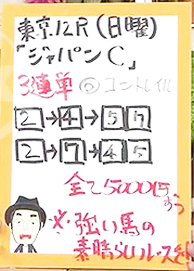 東京12R(日曜)
「ジャパンC」
3連単 ◎コントレイル
2→4→57
2→7→45
全て5000円ずつ
※強い馬の
素晴らしいレースを